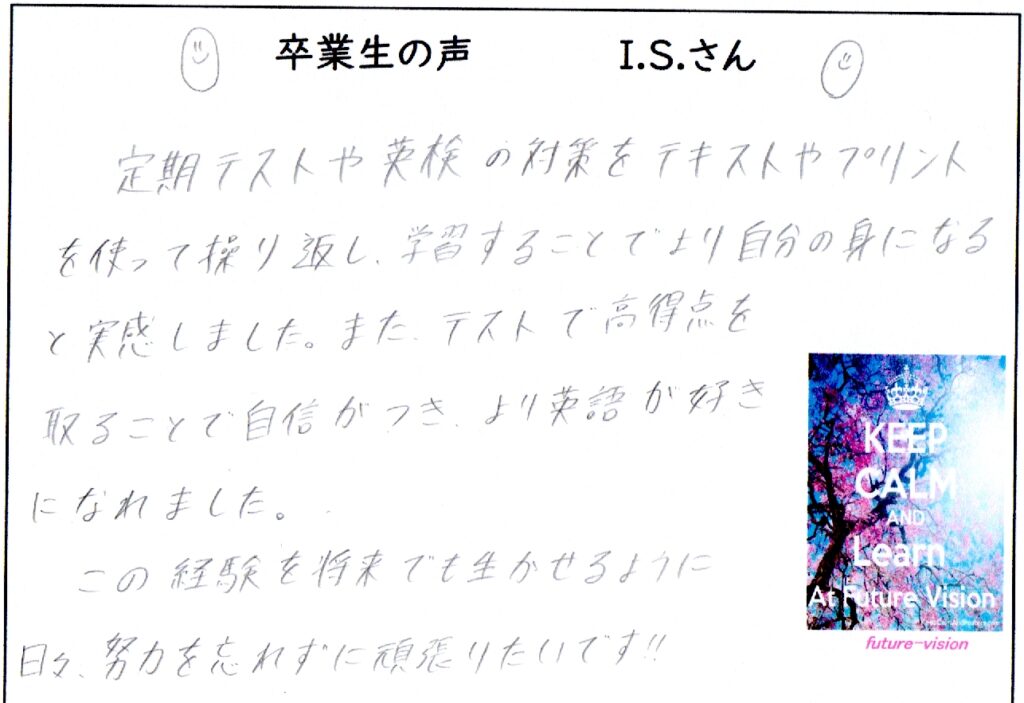 卒業生の声 I.S.さん
定期テストや英検の対策をテキストやプリント
を使って操り返し、学習することでより自分の身になる
と実感しました。また、テストで高得点を
取ることで自信がつき、より英語が好き
になれました。
この経験を将来でも生かせるように
日々、努力を忘れずに頑張りたいです!!
KEEP
CALM
AND
Learn
At Future Vision
future-vision